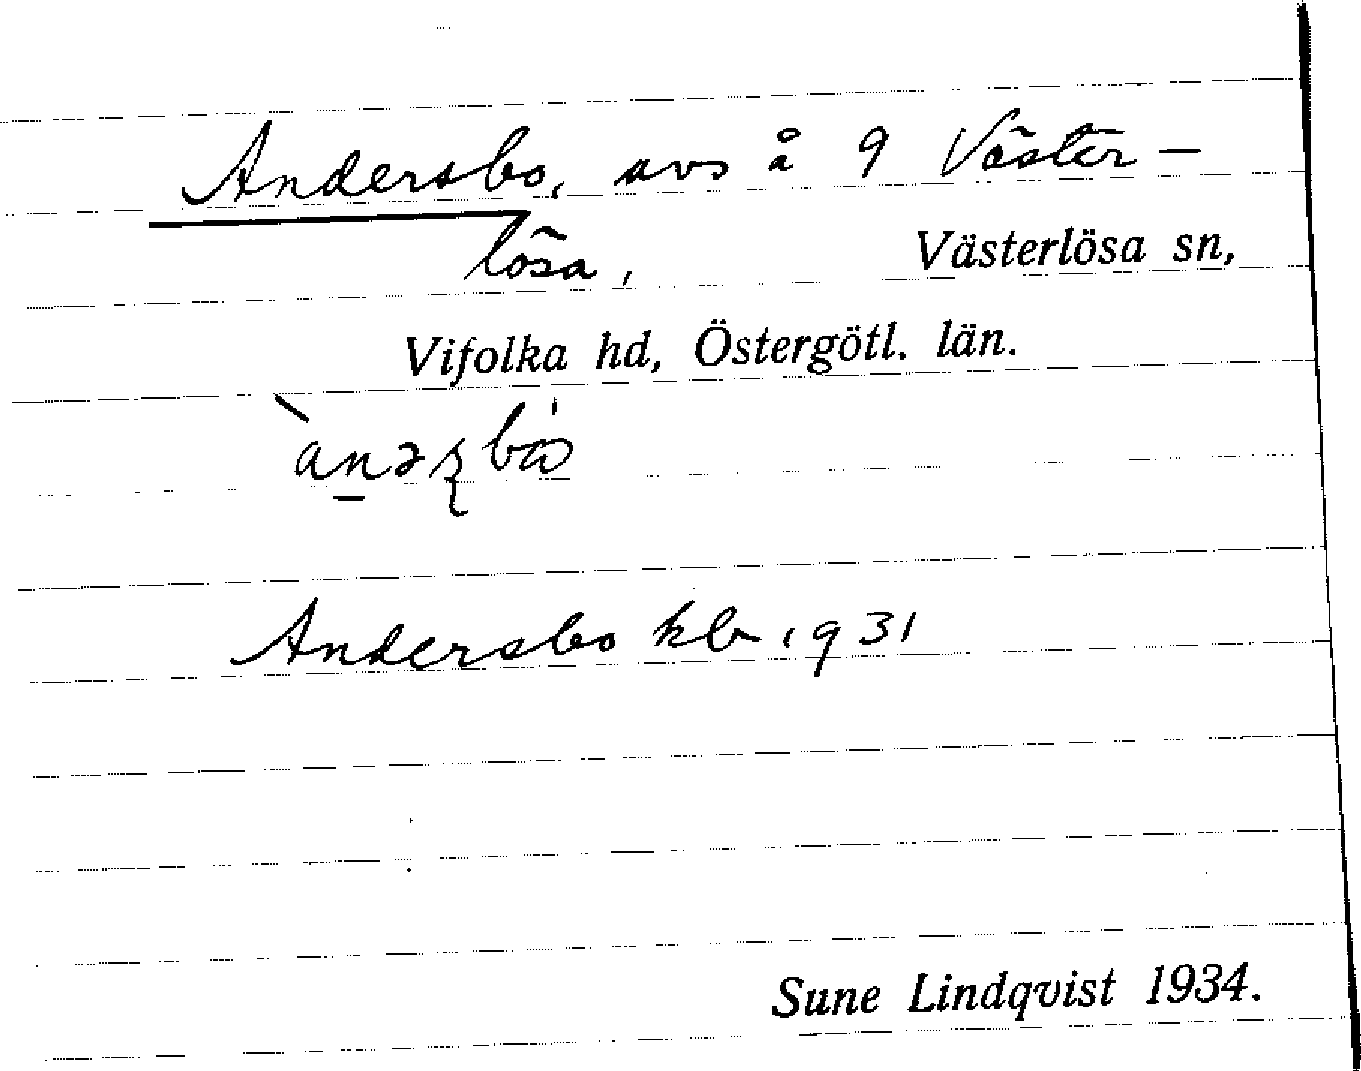 Andersbo, avs å 9 Väster-
lösa, Västerlösa sn,
Vifolka hd, Östergötl. län.
Andersbo kb 1931
Sune Lindqvist 1934.